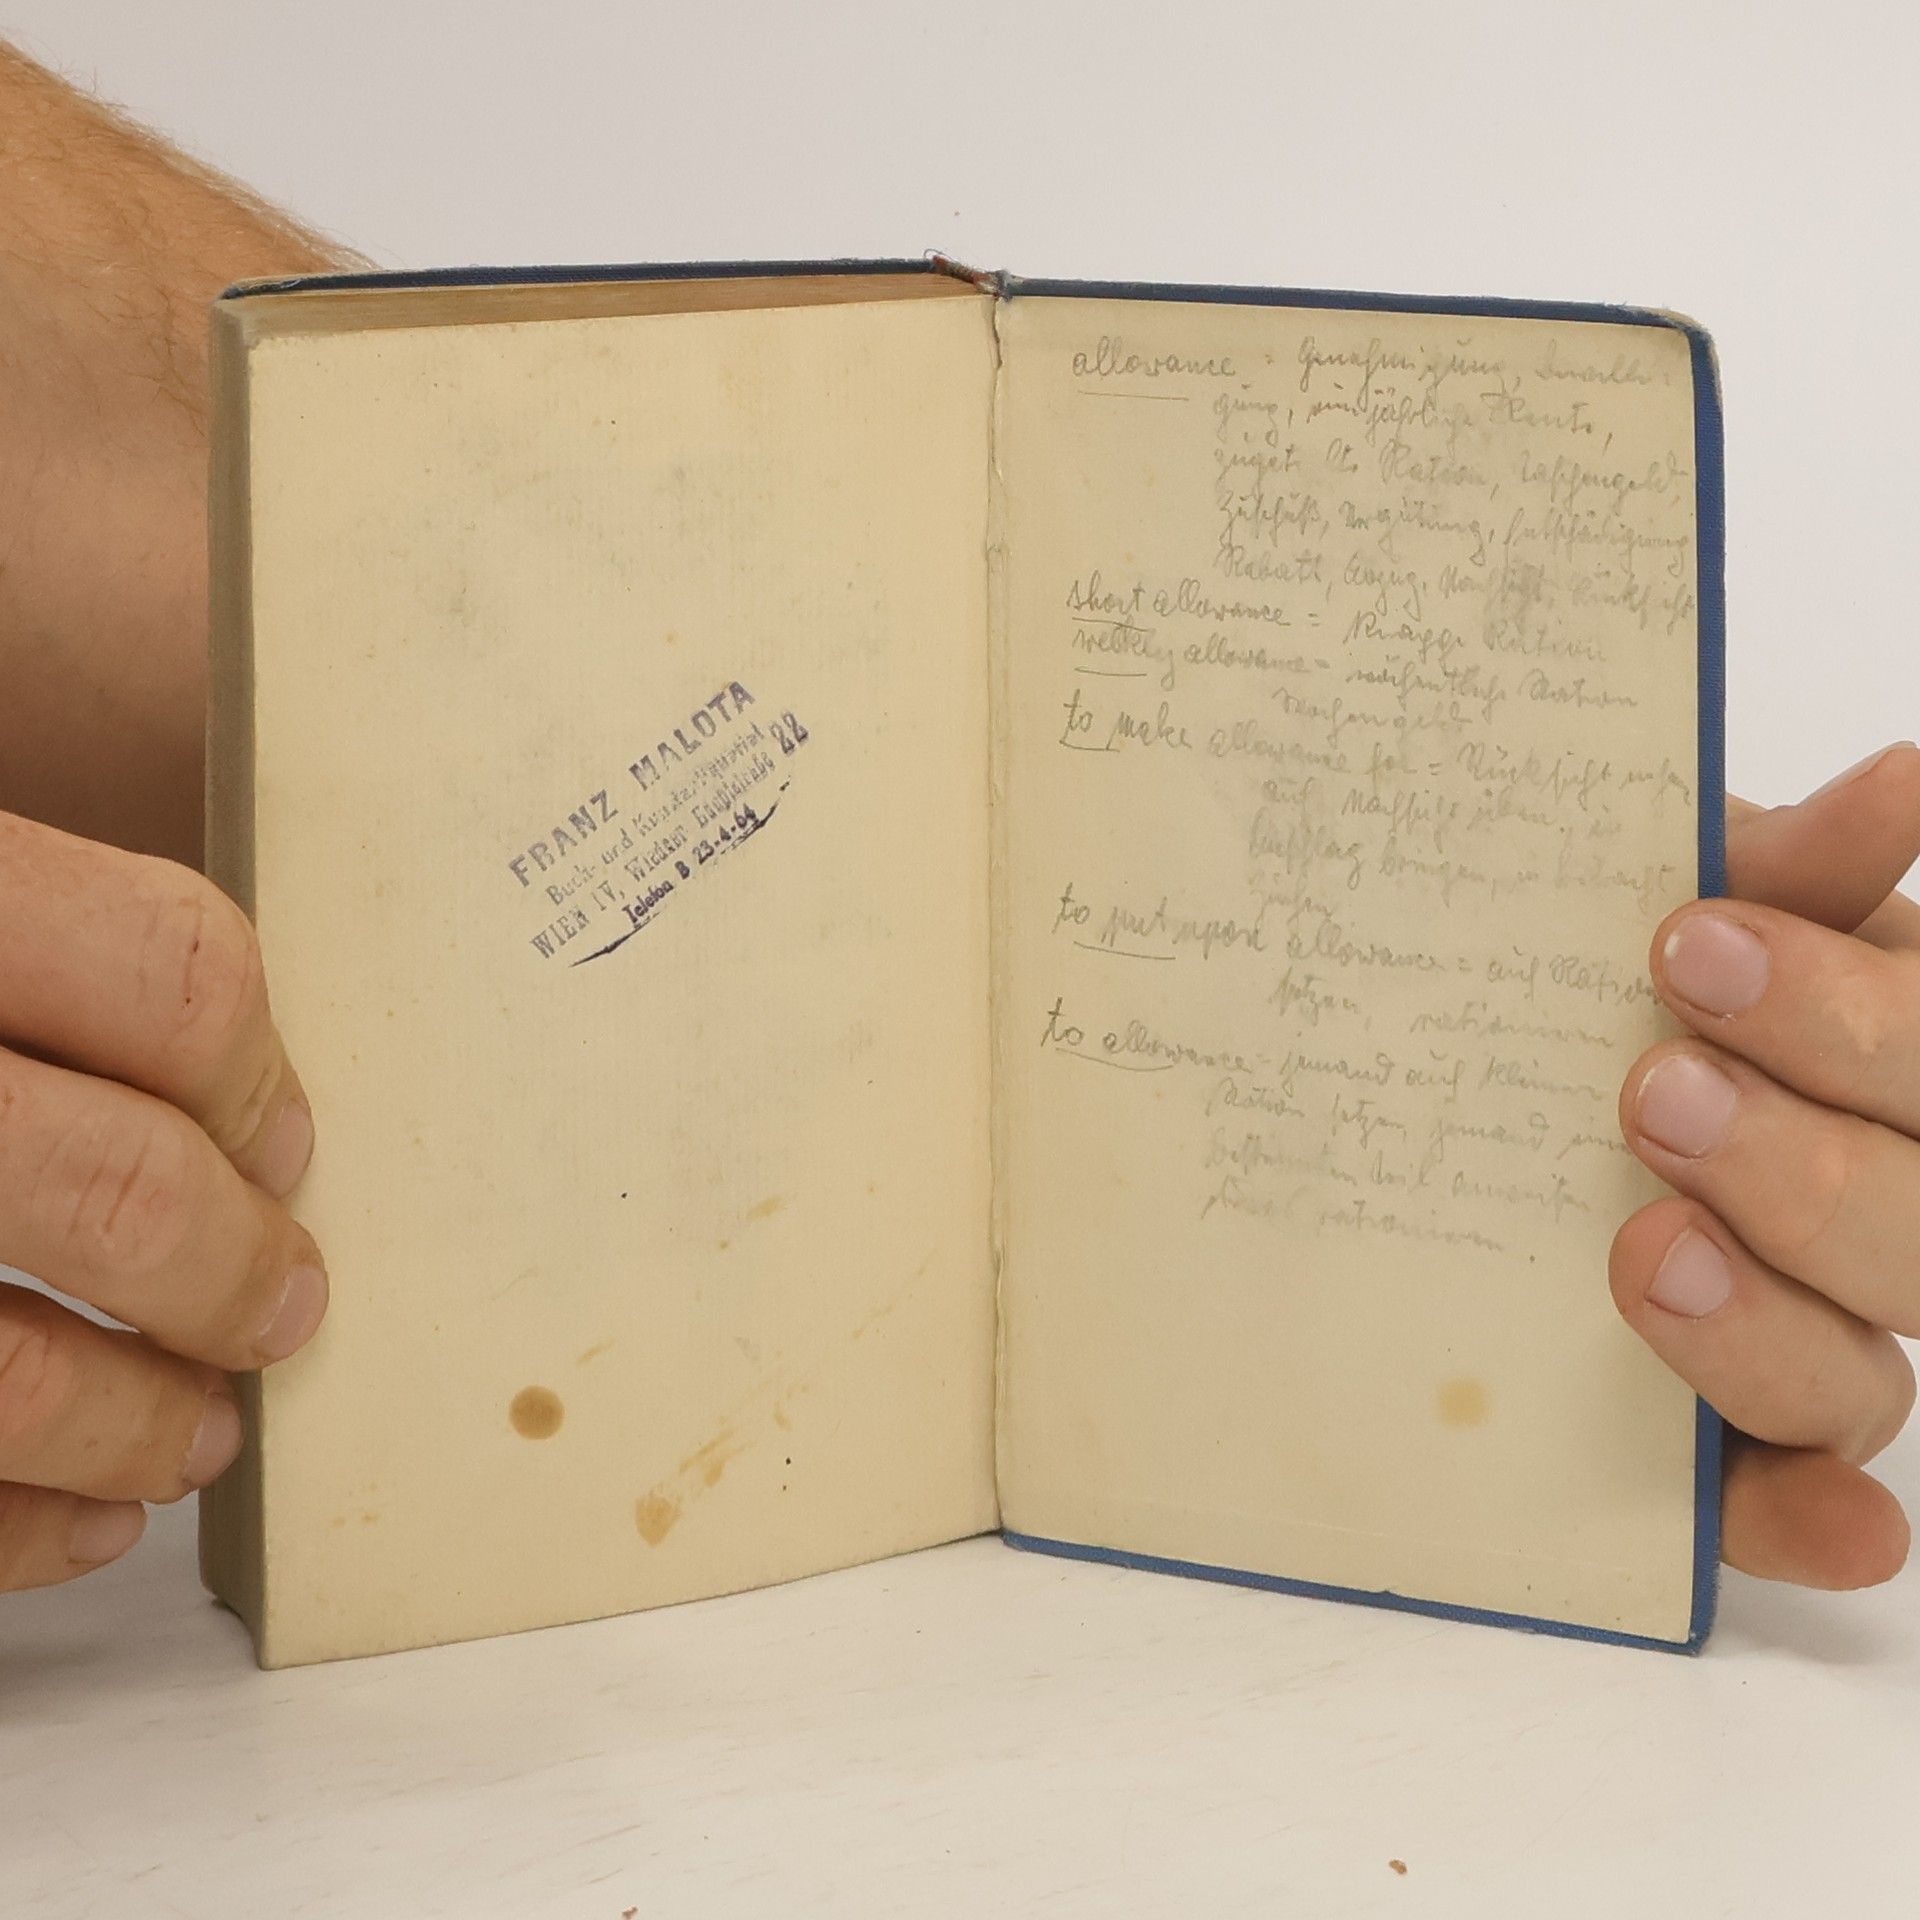 FRANZ MALOTA
Buch- und Kunstantiquariat
WIEN IV, Wiedner Hauptstraße 22
Telefon B 23-4-64
allowance = Genehmigung, Bewilli-
gung, eine jährliche Rente,
Ration, Taschengeld,
Zuschuß, Vergütung, Entschädigung
Rabatt, Abzug, Nachsicht, Rücksicht
short allowance = knappe Ration
weekly allowance = wöchentliche Ration
Wochengeld
to make allowance for = Rücksicht nehmen
auf Nachsicht üben, in
Anschlag bringen, in Betracht
ziehen
to put upon allowance = auf Ration
setzen, rationieren
to allowance = jemand auf kleine
Ration setzen jemand einen
bestimmten Teil anweisen
rationieren